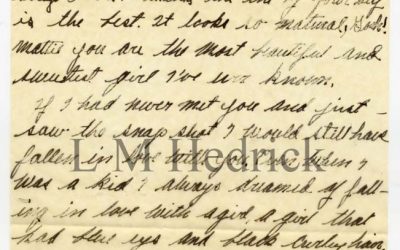 is the best. It looks so natural, Gosh!
Mattie you are the most beautiful and
sweetest girl I've ever known.
If I had never met you and just
saw the snap shot I would still have
fallen in love with you. Even when I
was a kid I always dreamed of fall-
ing in love with a girl, a girl that
had blue eyes and black curley hair,
L M Hedrick